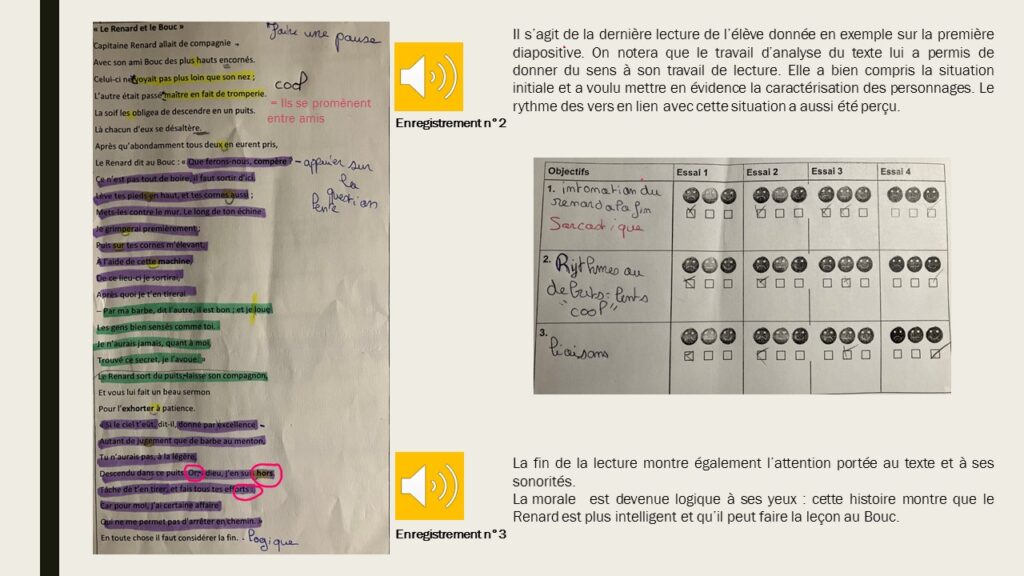 « Le Renard et le Bouc »
Faire une pause
Capitaine Renard allait de compagnie
Avec son ami Bouc des plus hauts encornés.
Celui-ci ne voyait pas plus loin que son nez ;
cool
L'autre était passé maître en fait de tromperie.
= Ils se promènent
entre amis
La soif les obligea de descendre en un puits.
Là chacun d'eux se désaltère.
Après qu'abondamment tous deux en eurent pris,
Le Renard dit au Bouc : « Que ferons-nous, compère ?
- appuier sur
la
question
Ce n'est pas tout de boire, il faut sortir d'ici.
Lève tes pieds en haut, et tes cornes aussi ;
Mets-les contre le mur. Le long de ton échine
Je grimperai premièrement ;
Puis sur tes cornes m'élevant,
A l'aide de cette machine,
De ce lieu-ci je sortirai,
Après quoi je t'en tirerai
– Par ma barbe, dit l'autre, il est bon ; et je loue
Les gens bien sensés comme toi.
Je n'aurais jamais, quant à moi,
Trouvé ce secret, je l'avoue. »
Le Renard sort du puits, laisse son compagnon,
Et vous lui fait un beau sermon
Pour l'exhorter à patience.
« Si le ciel t'eût, dit-il, donné par excellence
Autant de jugement que de barbe au menton,
Tu n'aurais pas, à la légère,
Descendu dans ce puits. Or, dieu, j'en sui hors
Tâche de t'en tirer, et fais tous tes efforts ;
Car pour moi, j'ai certaine affaire
Qui ne me permet pas d'arrêter en chemin. »
En toute chose il faut considérer la fin. - logique
Enregistrement n°2
Il s'agit de la dernière lecture de l'élève donnée en exemple sur la première
diapositive. On notera que le travail d'analyse du texte lui a permis de
donner du sens à son travail de lecture. Elle a bien compris la situation
initiale et a voulu mettre en évidence la caractérisation des personnages. Le
rythme des vers en lien avec cette situation a aussi été perçu.
Objectifs Essai 1 Essai 2 Essai 3 Essai 4
1. intonation du
renard a la fin
Sarcastique
2. Rythmes au
debuts : lents
"cool"
3.
liaisons
Enregistrement n°3
La fin de la lecture montre également l'attention portée au texte et à ses
sonorités.
La morale est devenue logique à ses yeux : cette histoire montre que le
Renard est plus intelligent et qu'il peut faire la leçon au Bouc.